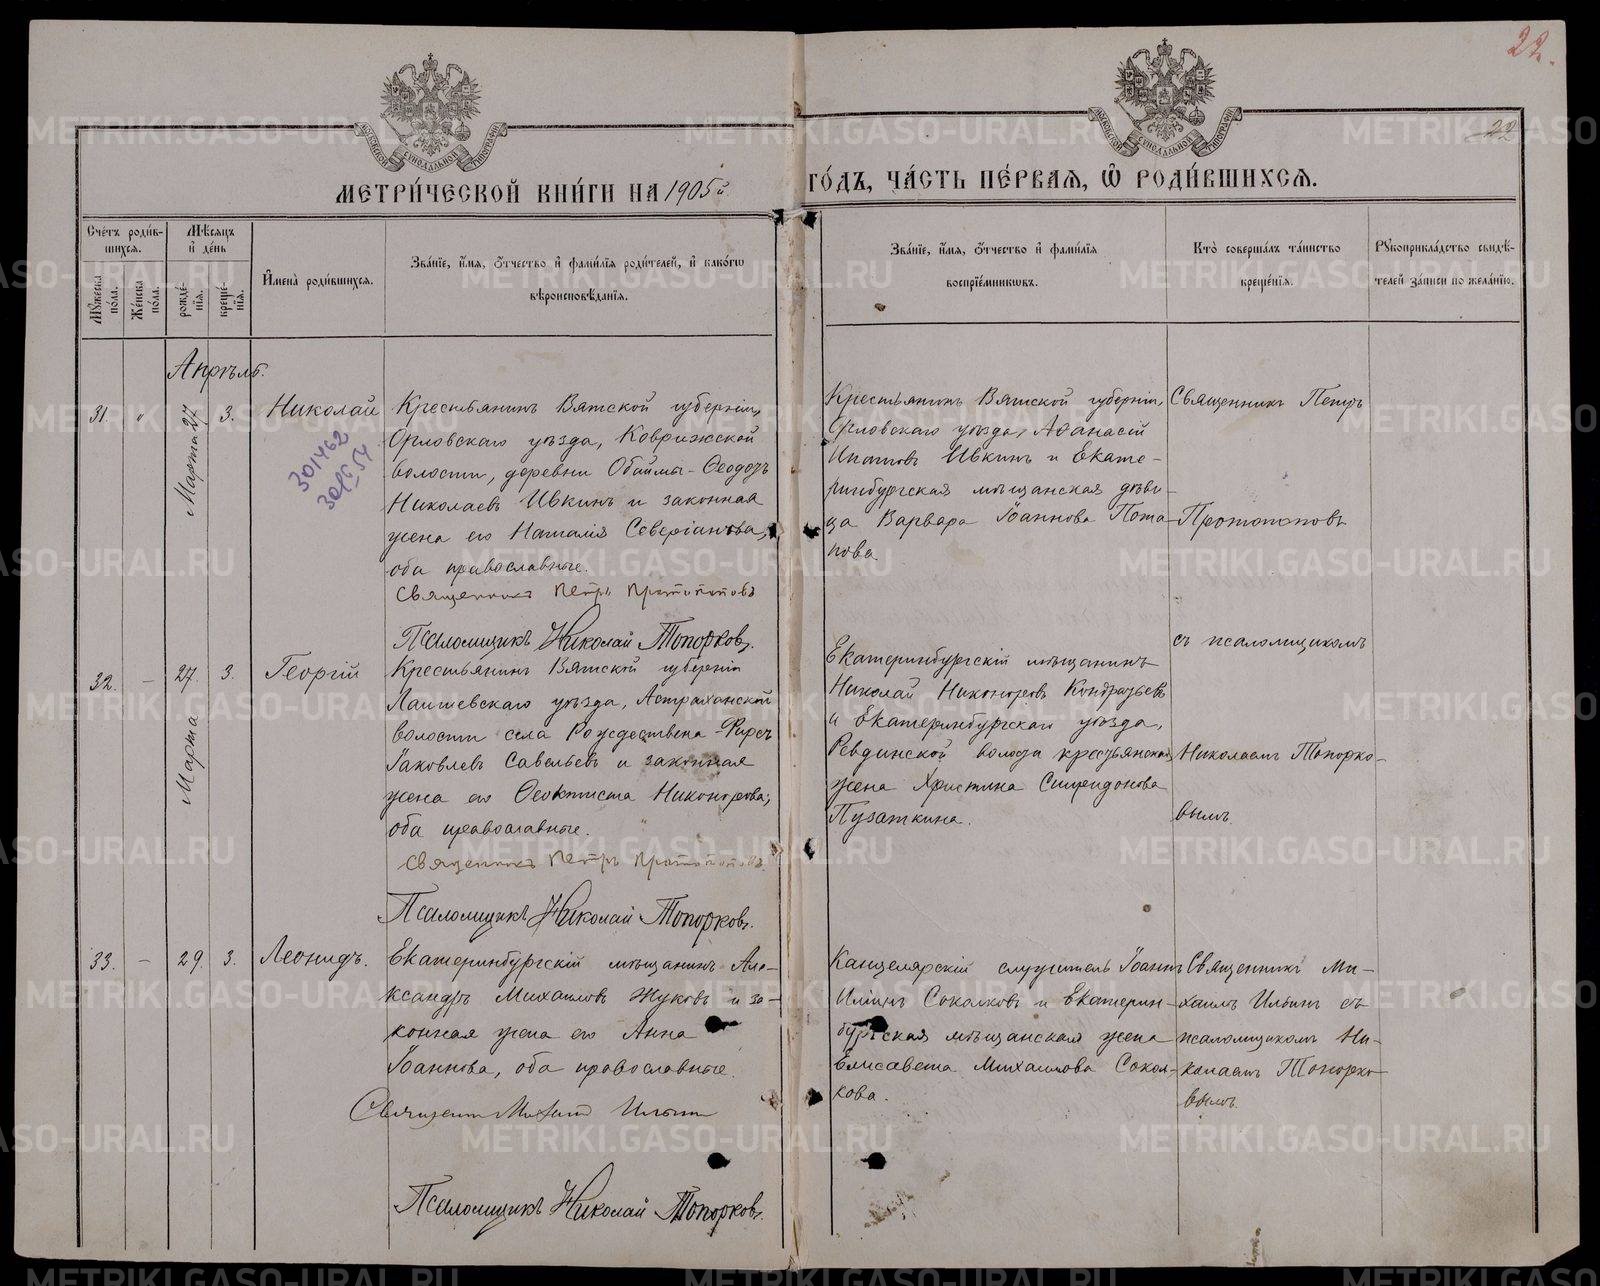 22.
22
МОСКОВСКОЙ СѴНОДАЛЬНОЙ ТИПОГРАФІИ
МОСКОВСКОЙ СѴНОДАЛЬНОЙ ТИПОГРАФІИ
МЕТРИ́ЧЕСКОЙ КНИ́ГИ НА 1905й ГО́ДЪ, ЧА́СТЬ ПЕ́РВАЯ, Ѿ РОДИ́ВШИХСЯ.
Сче́тъ роди́в-
шихся.
Мѣ́сяцъ
и҆ де́нь
Му́жеска
по́ла.
Же́нска
по́ла.
рожде́-
нїя.
креще́-
нїя.
И҆мена̀ роди́вшихся.
Зва́нїе, и҆́мя, ѻ҆́тчество и҆ фами́лїя роди́телей, и҆ како́гѡ
вѣроисповѣ́данїя.
Зва́нїе, и҆́мя, ѻ҆́тчество и҆ фами́лїя
воспрїе́мникѡвъ.
Кто̀ соверша́лъ та́инство
креще́нїя.
Рꙋкоприкла́дство свидѣ́-
телей за́писи по жела́нїю.
Апрѣль.
31. " Марта 27 3. Николай
301462
30/IX 54
Крестьянинъ Вятской губерніи,
Орловскаго уѣзда, Коврижской
волости, деревни Обаимы - Ѳеодоръ
Николаевъ Ивкинъ и законная
жена его Наталія Северіанова,
оба православные.
Священникъ Петръ Протопоповъ
Псаломщикъ Николай Топорковъ.
Крестьянинъ Вятской губерніи,
Орловскаго уѣзда, Аѳанасій
Ипатовъ Ивкинъ и Екате-
ринбургская мѣщанская дѣви-
ца Варвара Іоаннова Пота-
пова.
Священникъ Петръ
Протопоповъ
съ псаломщикомъ
Николаемъ Топорко-
вымъ.
32. - 27. Марта 3. Георгій
Крестьянинъ Вятской губерніи
Лаишевскаго уѣзда, Астраханской
волости села Рождествена Фирсъ
Іаковлевъ Савельевъ и законная
жена его Ѳеоктиста Никонорова,
оба православные.
Священникъ Петръ Протопоповъ.
Псаломщикъ Николай Топорковъ.
Екатеринбургскій мѣщанинъ
Николай Никоноровъ Кондратьевъ
и Екатеринбургскаго уѣзда,
Ревдинской волости крестьянская
жена Христина Спиридонова
Пузаткина.
33. - 29. 3. Леонидъ.
Екатеринбургскій мѣщанинъ Але-
ксандръ Михаиловъ Жуковъ и за-
конная жена его Анна
Іоаннова, оба православные.
Священникъ Михаилъ Ильинъ
Псаломщикъ Николай Топорковъ.
Канцелярскій служитель Іоаннъ
Иліинъ Соколковъ и Екатерин-
бургская мѣщанская жена
Елисавета Михаилова Сокол-
кова.
Священникъ Ми-
хаилъ Ильинъ съ
псаломщикомъ Ни-
колаемъ Топорко-
вымъ.
METRIKI.GASO-URAL.RU